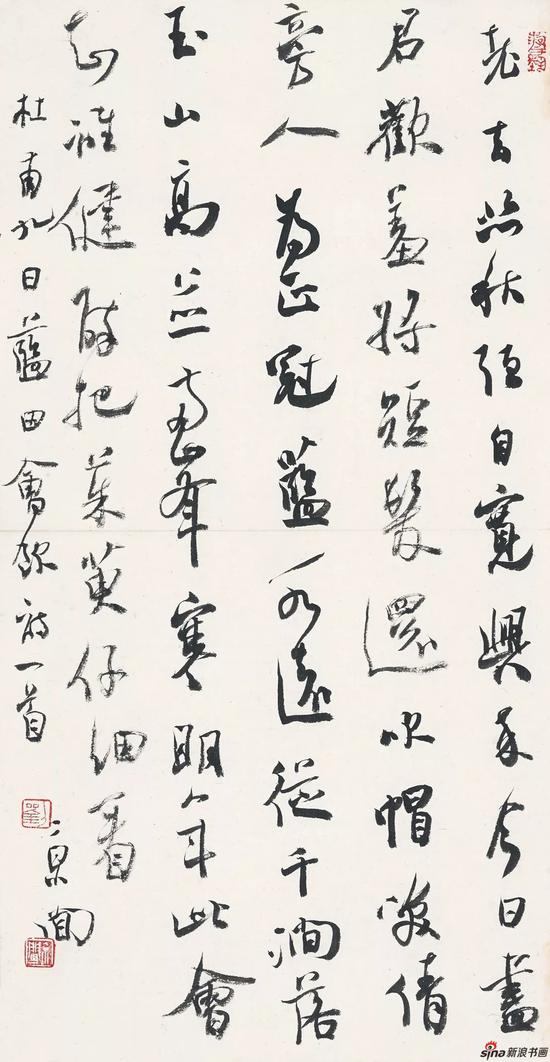 老去悲秋強自寬興來今日盡
君歡羞將短髮還吹帽咲倩
旁人為正冠藍水遠從千澗落
玉山高並兩峯寒明年此會
知誰健醉把茱萸仔細看
杜甫九日藍田會飲詩一首
sina新浪书画